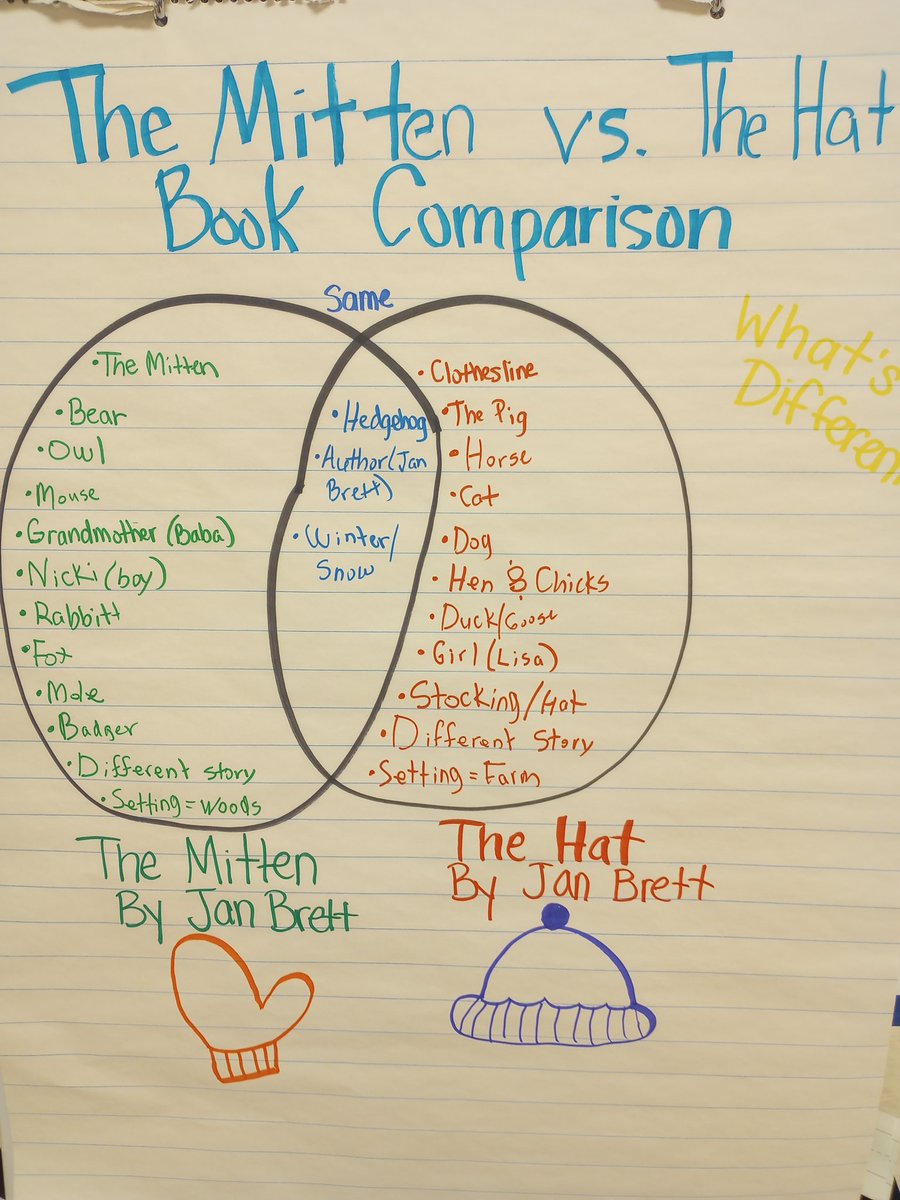 The Mitten vs. The Hat
Book Comparison
Same
What's
Differen
• The Mitten
• Bear
• Owl
• Mouse
• Grandmother (Baba)
• Nicki (boy)
• Rabbitt
• Fox
• Mole
• Badger
• Different story
• Setting = Woods
• Hedgehog
• Author (Jan
Brett)
• Winter/
Snow
• Clothesline
• The Pig
• Horse
• Cat
• Dog
• Hen & Chicks
• Duck/Goose
• Girl (Lisa)
• Stocking/Hat
• Different Story
• Setting = Farm
The Mitten
By Jan Brett
The Hat
By Jan Brett